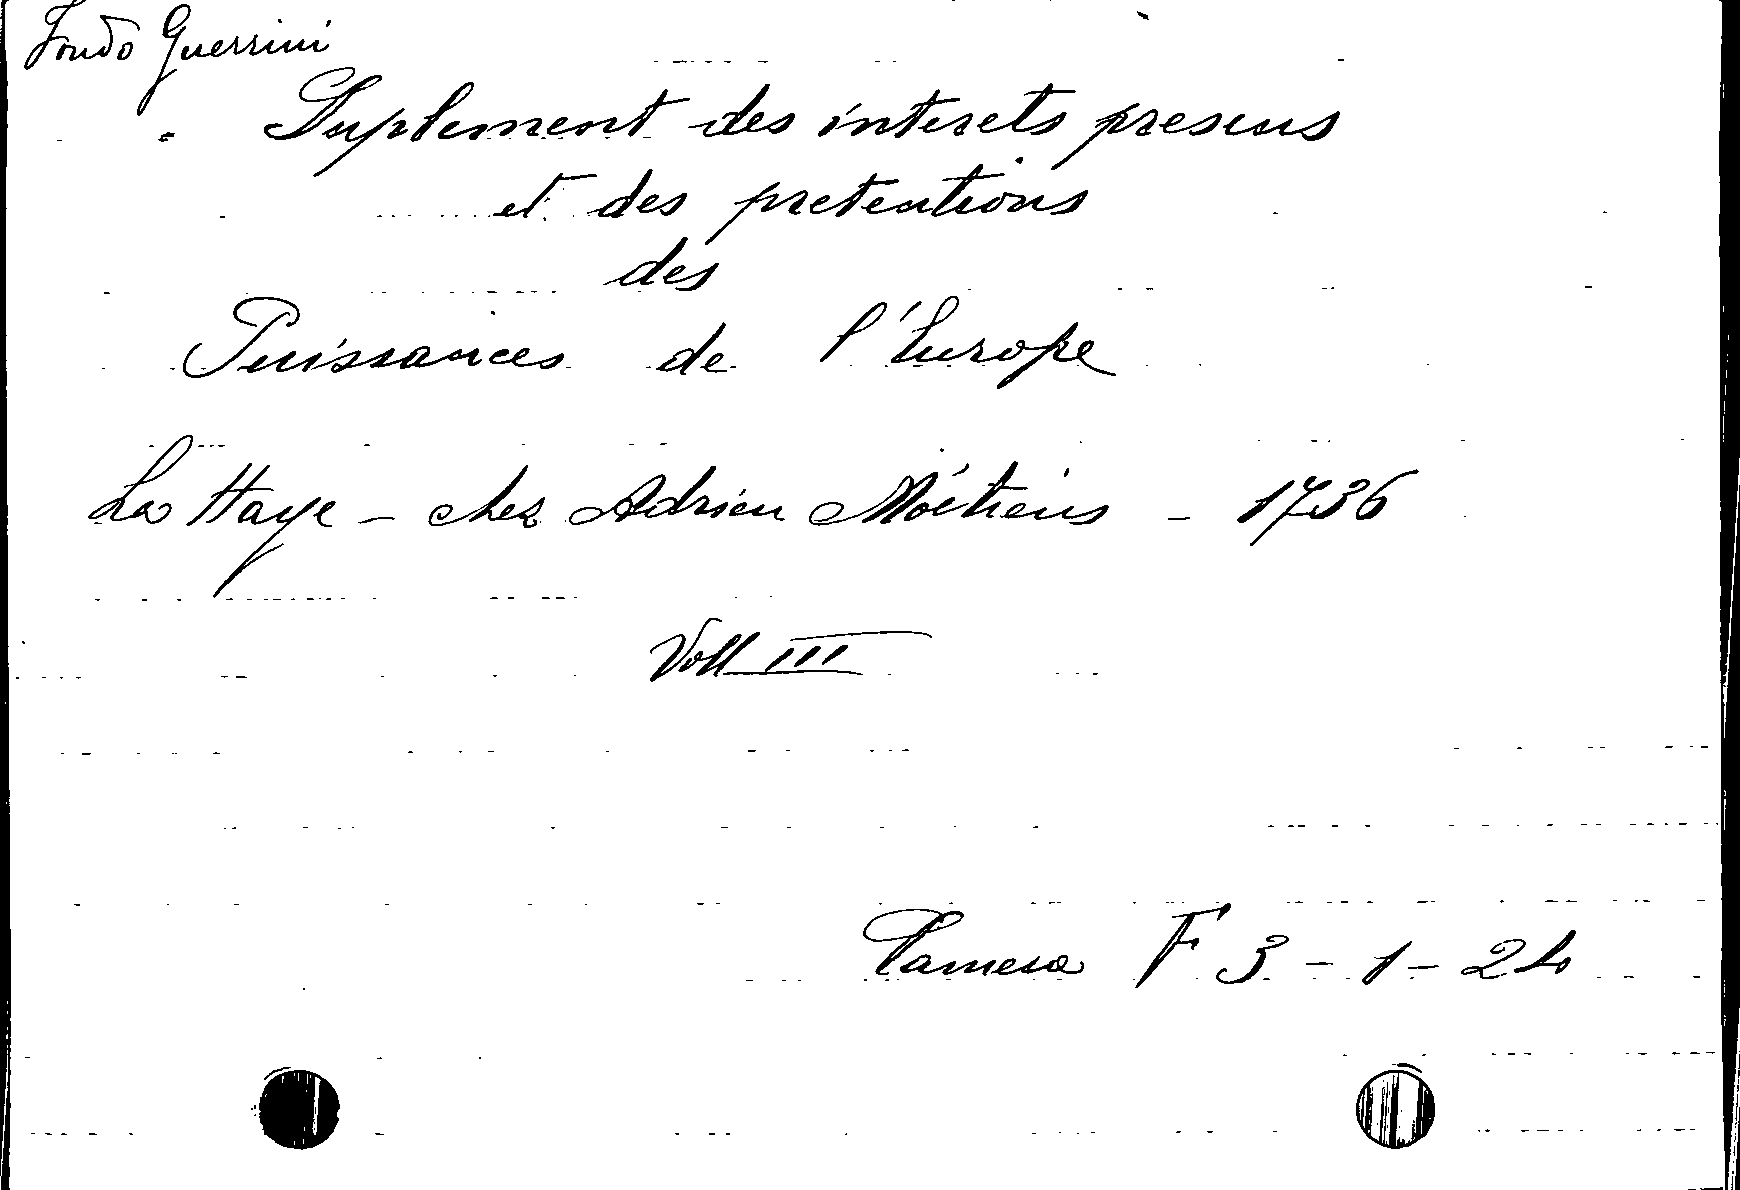 Fondo Guerrini
Suplement des interets presens
et des pretentions
des
Puissances de l'Europe
La Haye - chez Adrien Moétiens - 1736
Voll III
Camera F 3 - 1 - 24